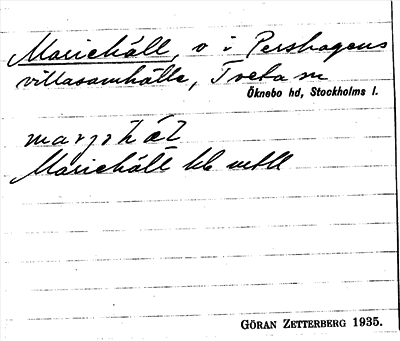 Mariehäll, v i Pershagens
villasamhälle, Tveta sn
Öknebo hd, Stockholms l.
Mariehäll
GÖRAN ZETTERBERG 1935.